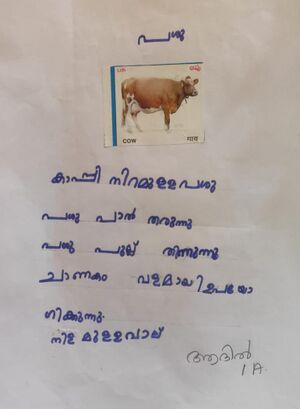 പശു
COW गाय
കാപ്പി നിറമുള്ള പശു
പശു പാൽ തരുന്നു
പശു പുല്ല് തിന്നുന്നു
ചാണകം വളമായി ഉപയോ
ഗിക്കുന്നു.
നീള മുള്ളവാല്
ആദിൽ
1 A.